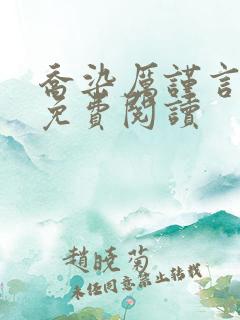 喬染厲謹言
免費閱讀
趙曉菊
未經同意禁止轉載